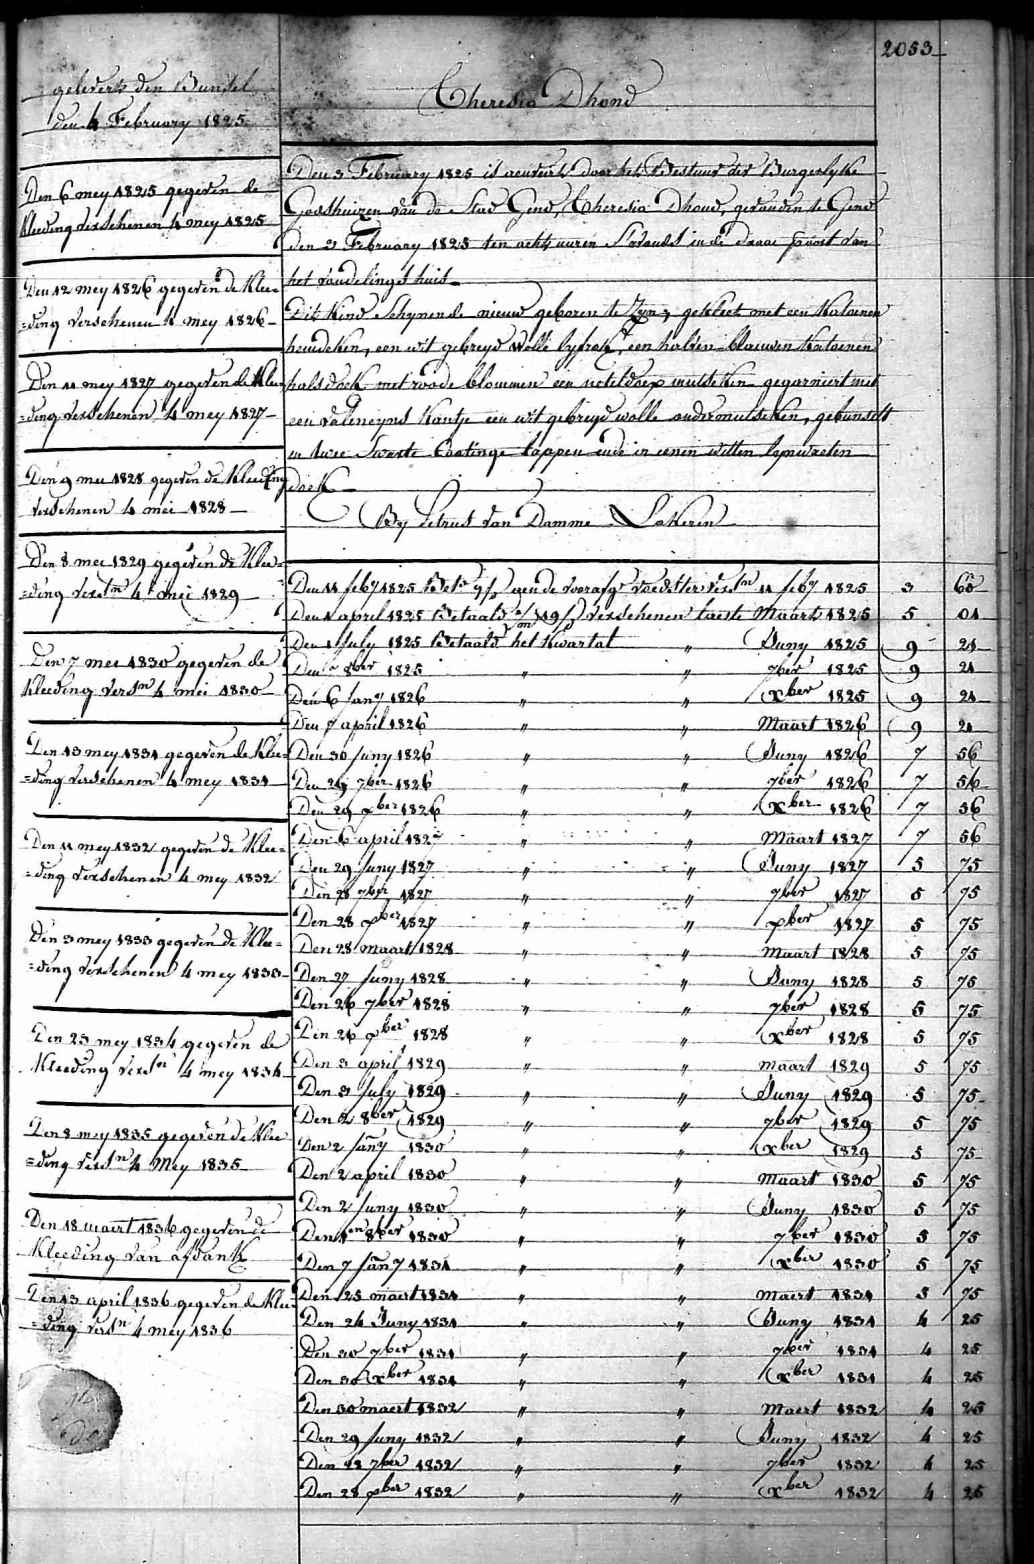 2053
Theresia Dhond
gelevert den Bundel
den 4 February 1825
Den 6 mey 1825 gegeven de
Kleeding verschenen 4 mey 1825
Den 12 mey 1826 gegeven de Klee=
=ding verschenen 4 mey 1826
Den 11 mey 1827 gegeven de Klee
=ding verschenen 4 mey 1827
Den 9 mei 1828 gegeven de Kleeding
verschenen 4 mei 1828
Den 8 mei 1829 gegeven de Klee=
=ding versn 4 mei 1829
Den 7 mei 1830 gegeven de
Kleeding versn 4 mei 1830
Den 13 mey 1831 gegeven de Klee=
=ding verschenen 4 mey 1831
Den 11 mey 1832 gegeven de Klee=
=ding verschenen 4 mey 1832
Den 3 mey 1833 gegeven de Klee=
=ding verschenen 4 mey 1833
Den 23 mey 1834 gegeven de
Kleeding versn 4 mey 1834
Den 8 mey 1835 gegeven de Klee
=ding versn 4 Mey 1835
Den 18 maert 1836 gegeven de
Kleeding van afdank
Den 13 april 1836 gegeven de Klee
=ding versn 4 mey 1836
Den 3 February 1825 is aenveirt door het Bestuur der Burgerlyke
Godshuizen van de Stad Gend, Theresia Dhond, gevonden te Gend
den 3 February 1825 ten acht uuren S'avonds in de draai poort van
het vondelings huis
Dit Kind Schynende nieuw geboren te Zyn, gekleet met een Katoenen
hemdeken, een wit gebreyd wolle lyfrok, een halven blauwen Katoenen
halsdoek met roode blommen een neteldoex mutseken gegarniert met
een valencyns Kantje een wit gebreyd wolle ondermutseken, gebunselt
in twee Swarte Coatinge lappen ende in eenen witten lynwaeten
doek
By Petrus van Damme Lokeren
Den 11 feby 1825 Bet gen de voorafg voedster versn 11 feby 1825 3 60
Den 1 april 1825 Betaald verschenen laeste Maart 1825 5 01
Den 1 July 1825 Betaald het Kwartal " Juny 1825 9 21
Den 8ber 1825 " " 7ber 1825 9 21
Den 6 Jany 1826 " " Xber 1825 9 21
Den 7 april 1826 " " Maart 1826 9 21
Den 30 Juny 1826 " " Juny 1826 7 56
Den 29 7ber 1826 " " 7ber 1826 7 56
Den 29 xber 1826 " " Xber 1826 7 56
Den 6 april 1827 " " Maart 1827 7 56
Den 29 Juny 1827 " " Juny 1827 5 75
Den 28 7ber 1827 " " 7ber 1827 5 75
Den 28 xber 1827 " " xber 1827 5 75
Den 28 maart 1828 " " Maart 1828 5 75
Den 27 Juny 1828 " " Juny 1828 5 75
Den 26 7ber 1828 " " 7ber 1828 5 75
Den 26 xber 1828 " " Xber 1828 5 75
Den 3 april 1829 " " maart 1829 5 75
Den 3 July 1829 " " Juny 1829 5 75
Den 2 8ber 1829 " " 7ber 1829 5 75
Den 2 Jany 1830 " " Xber 1829 5 75
Den 2 april 1830 " " Maart 1830 5 75
Den 2 Juny 1830 " " Juny 1830 5 75
Den 1en 8ber 1830 " " 7ber 1830 5 75
Den 7 Jany 1831 " " Xber 1830 5 75
Den 25 maert 1831 " " Maert 1831 5 75
Den 24 Juny 1831 " " Juny 1831 4 25
Den 30 7ber 1831 " " 7ber 1831 4 25
Den 30 Xber 1831 " " Xber 1831 4 25
Den 30 maert 1832 " " Maert 1832 4 25
Den 29 Juny 1832 " " Juny 1832 4 25
Den 28 7ber 1832 " " 7ber 1832 4 25
Den 28 xber 1832 " " Xber 1832 4 25